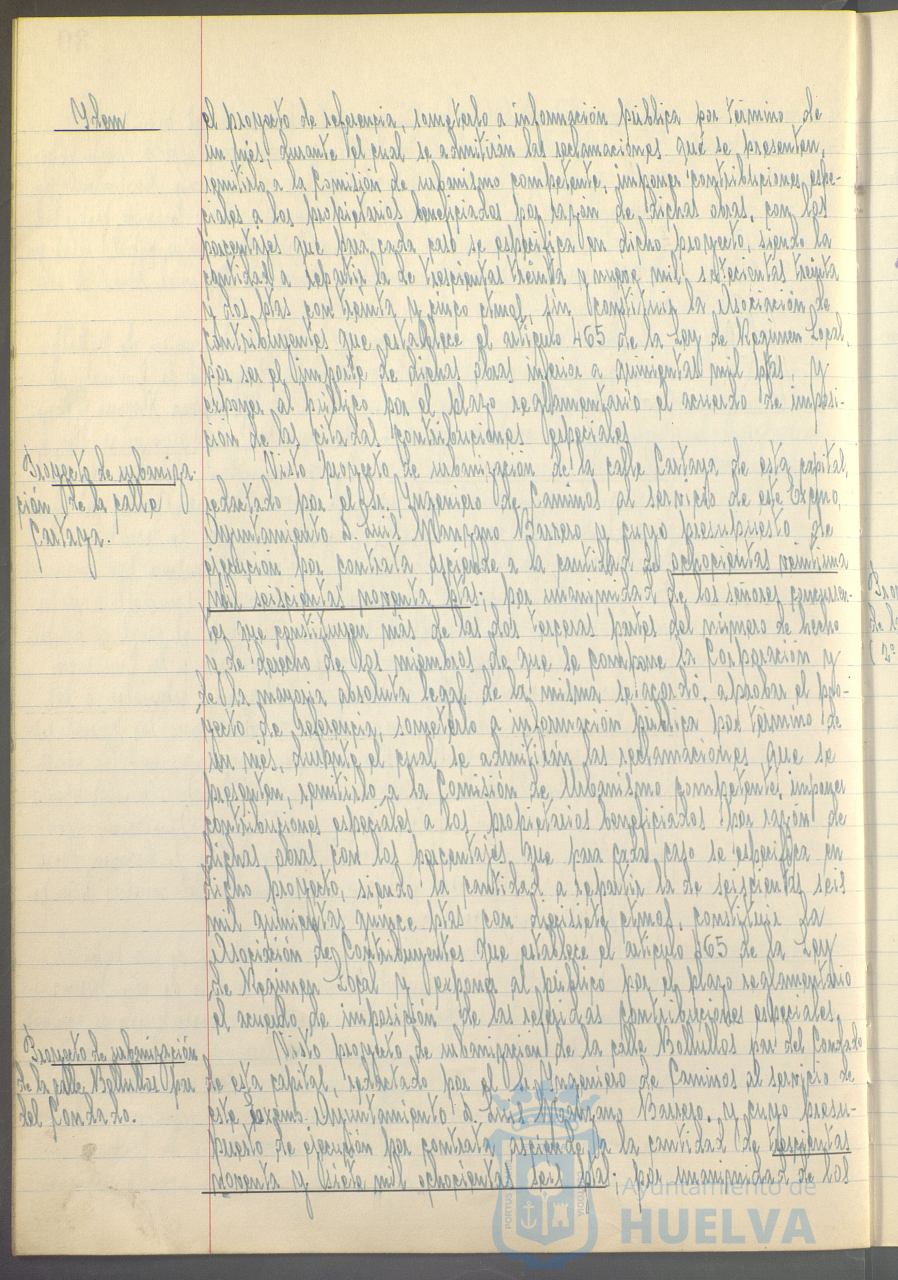 Idem
el proyecto de referencia, someterlo a información pública por término de
un mes, durante el cual se admitirán las reclamaciones que se presenten,
remitirlo a la Comisión de urbanismo competente, imponer contribuciones espe-
ciales a los propietarios beneficiados por razón de dichas obras, con los
porcentajes que para cada caso se especifica en dicho proyecto, siendo la
cantidad a repartir la de trescientas treinta y nueve mil setecientas treinta
y dos ptas con treinta y cinco ctmos, sin constituir la Asociación de
Contribuyentes que establece el artículo 465 de la Ley de Regimen Local,
por ser el importe de dichas obras inferior a quinientas mil ptas, y
exponer al público por el plazo reglamentario el acuerdo de imposi-
ción de las citadas contribuciones especiales
Proyecto de urbaniza-
ción de la calle
Cartaya.
Visto proyecto de urbanización de la calle Cartaya de esta capital,
redactado por el Sr. Ingeniero de Caminos al servicio de este Excmo.
Ayuntamiento D. Luis Manzano Barrero y cuyo presupuesto de
ejecución por contrata asciende a la cantidad de ochocientas veintiuna
mil seiscientas noventa ptas; por unanimidad de los señores concurren-
tes que constituyen más de las dos terceras partes del número de hecho
y de derecho de los miembros de que se compone la Corporación y
de la mayoría absoluta legal de la misma se acordó: aprobar el pro-
yecto de referencia, someterlo a información pública por término de
un mes, durante el cual se admitirán las reclamaciones que se
presenten, remitirlo a la Comisión de Urbanismo competente, imponer
contribuciones especiales a los propietarios beneficiados por razón de
dichas obras con los porcentajes que para cada caso se especifica en
dicho proyecto, siendo la cantidad a repartir la de seiscientas seis
mil quinientas quince ptas con diecisiete ctmos, constituir la
Asociación de Contribuyentes que establece el artículo 465 de la Ley
de Regimen Local y exponer al público por el plazo reglamentario
el acuerdo de imposición de las referidas contribuciones especiales.
Proyecto de urbanización
de la calle Bollullos par
del Condado.
Visto proyecto de urbanización de la calle Bollullos par del Condado
de esta capital, redactado por el Sr. Ingeniero de Caminos al servicio de
este Excmo. Ayuntamiento D. Luis Manzano Barrero, y cuyo presu-
puesto de ejecución por contrata asciende a la cantidad de trescientas
noventa y siete mil ochocientas seis ptas; por unanimidad de los
Ayuntamiento de
HUELVA